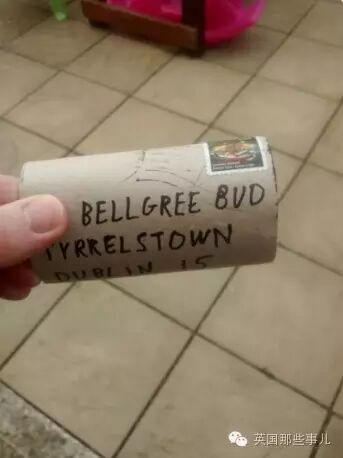 BELLGREE BVD
TYRRELSTOWN
DUBLIN 15
英国那些事儿